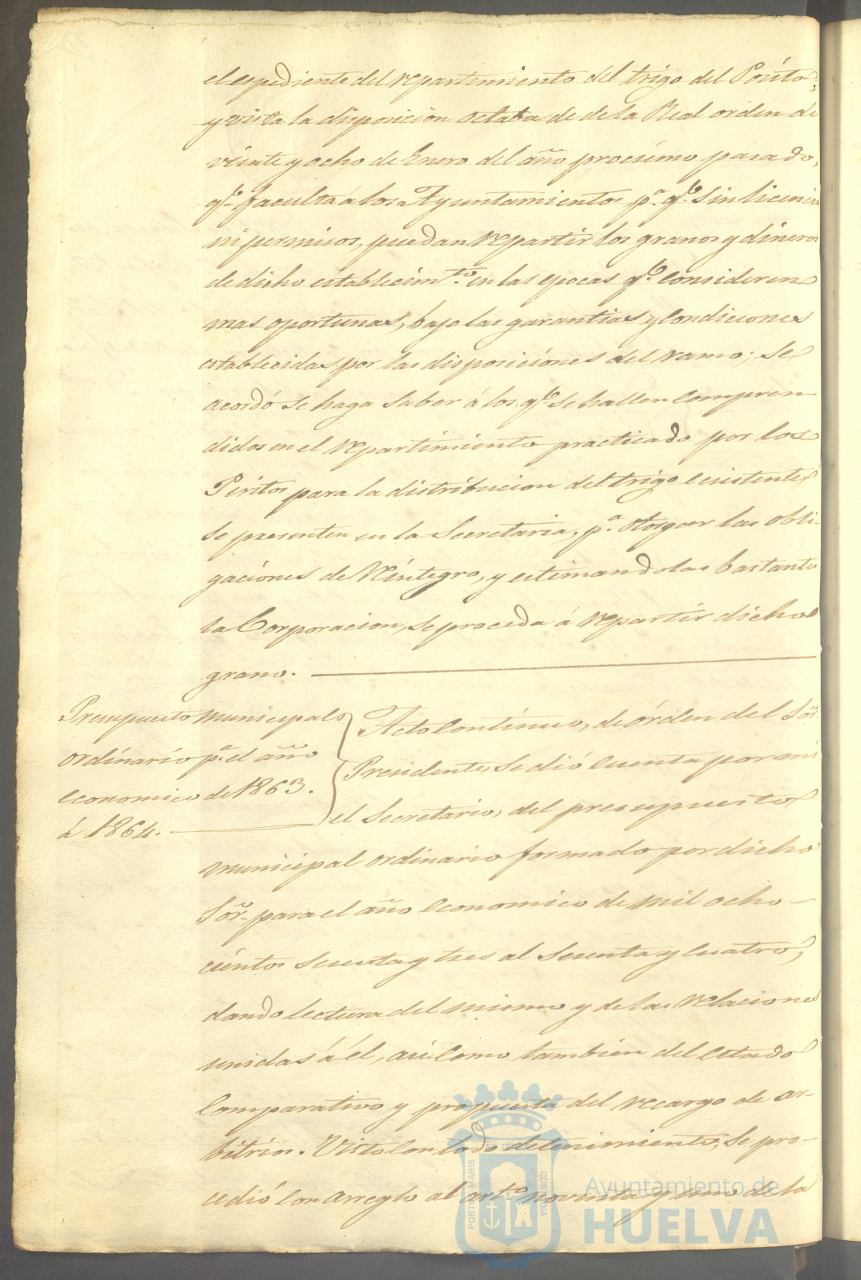 el espediente del repartimiento del trigo del Pósito;
y vista la disposicion octaba de de la Real orden de
veinte y ocho de Enero del año procsimo pasado,
qe. faculta á los Ayuntamientos pa. qe. sin licencia
ni permisos, puedan repartir los granos y dineros
de dicho establecimto. en las epocas qe. consideren
mas oportunas, bajo las garantias y condiciones
establecidas por las disposiciones del ramo; se
acordó se haga saber á los qe. se hallen compren-
didos en el repartimiento practicado por los
Peritos para la distribucion del trigo ecsistente
se presenten en la Secretaria, pa. otorgar las obli-
gaciones de reintegro, y estimandolas bastante
la Corporacion, se proceda á repartir dicho
grano.
Presupuesto municipal
ordinario pa. el año
economico de 1863.
á 1864.
Acto continuo, de órden del Sor.
Presidente, se dió cuenta por mi
el Secretario, del presupuesto
municipal ordinario formado por dicho
Sor. para el año economico de mil ocho-
cientos sesenta y tres al sesenta y cuatro,
dando lectura del mismo y de las relaciones
unidas á él, asi como tambien del estado
comparativo y propuesta del recargo de ar-
bitrios. Visto con todo detenimiento, se pro-
cedió con arreglo al arto. noventa y uno de la
PORTUS MARIS
Ayuntamiento de
HUELVA